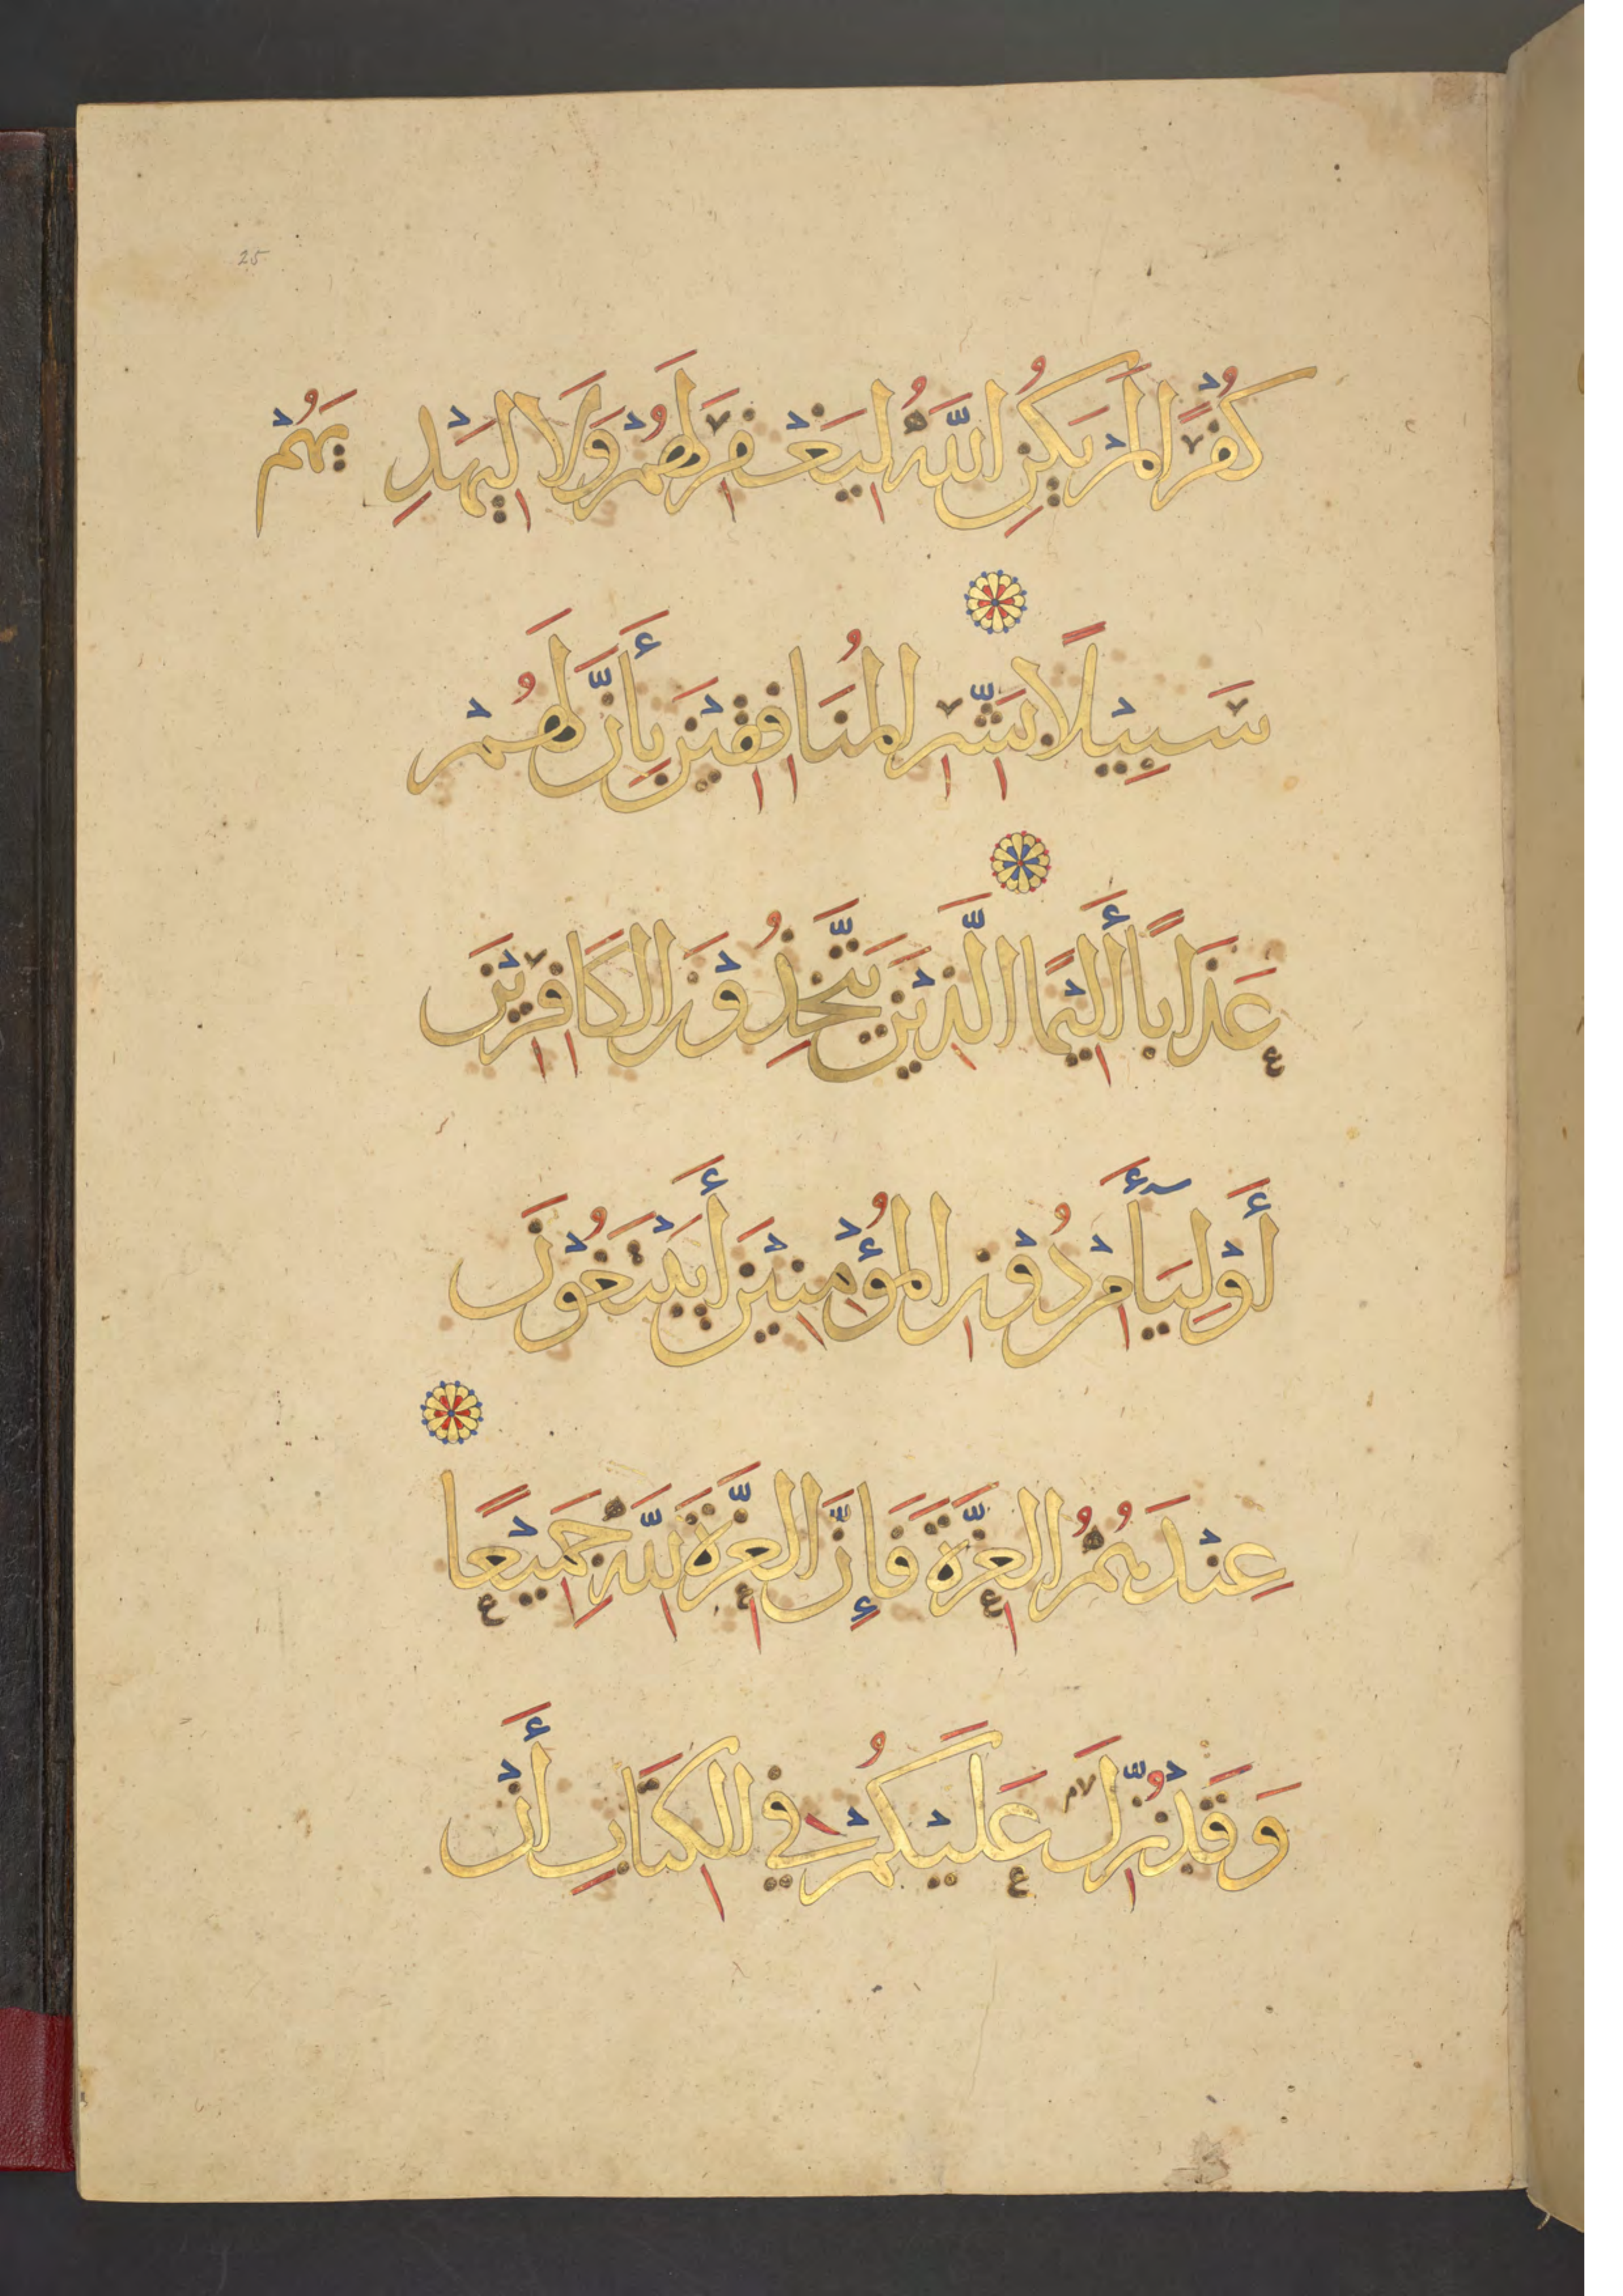 25
كُفْرًا لَمْ يَكُنِ اللَّهُ لِيَغْفِرَ لَهُمْ وَلَا لِيَهْدِيَهُمْ
سَبِيْلًا بَشِّرِ الْمُنَافِقِيْنَ بِأَنَّ لَهُمْ
عَذَابًا أَلِيْمًا الَّذِيْنَ يَتَّخِذُوْنَ الْكَافِرِيْنَ
أَوْلِيَآءَ مِنْ دُوْنِ الْمُؤْمِنِيْنَ أَيَبْتَغُوْنَ
عِنْدَهُمُ الْعِزَّةَ فَإِنَّ الْعِزَّةَ لِلَّهِ جَمِيْعًا
وَقَدْ نُزِّلَ عَلَيْكُمْ فِي الْكِتَابِ أَنْ